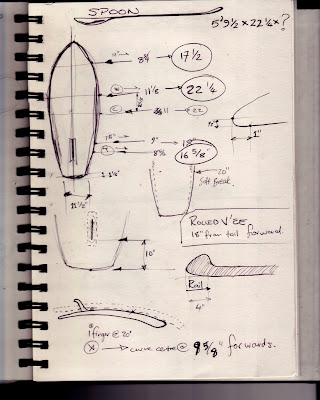 SPOON
5'9½ x 22¼ x ?
8¾ 17½
11⅛ 22¼
C 11 22
1"
18" 9" 18"
16⅝"
20"
Soft Break.
1½"
11½"
ROLLED V'ZE
18" from tail forward.
10"
Rail
4"
@
1 finger @ 20"
X curve centre @ 9⅝" forwards.